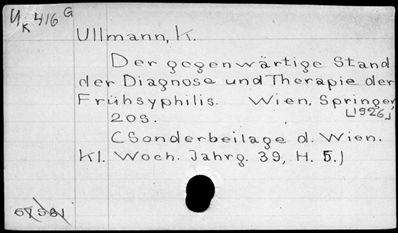 U K 416 G
Ullmann, K.
Der gegenwärtige Stand
der Diagnose und Therapie der
Frühsyphilis. Wien, Springer,
[1926]
20s.
(Sonderbeilage d. Wien.
Kl. Woch. Jahrg. 39, H. 5.)